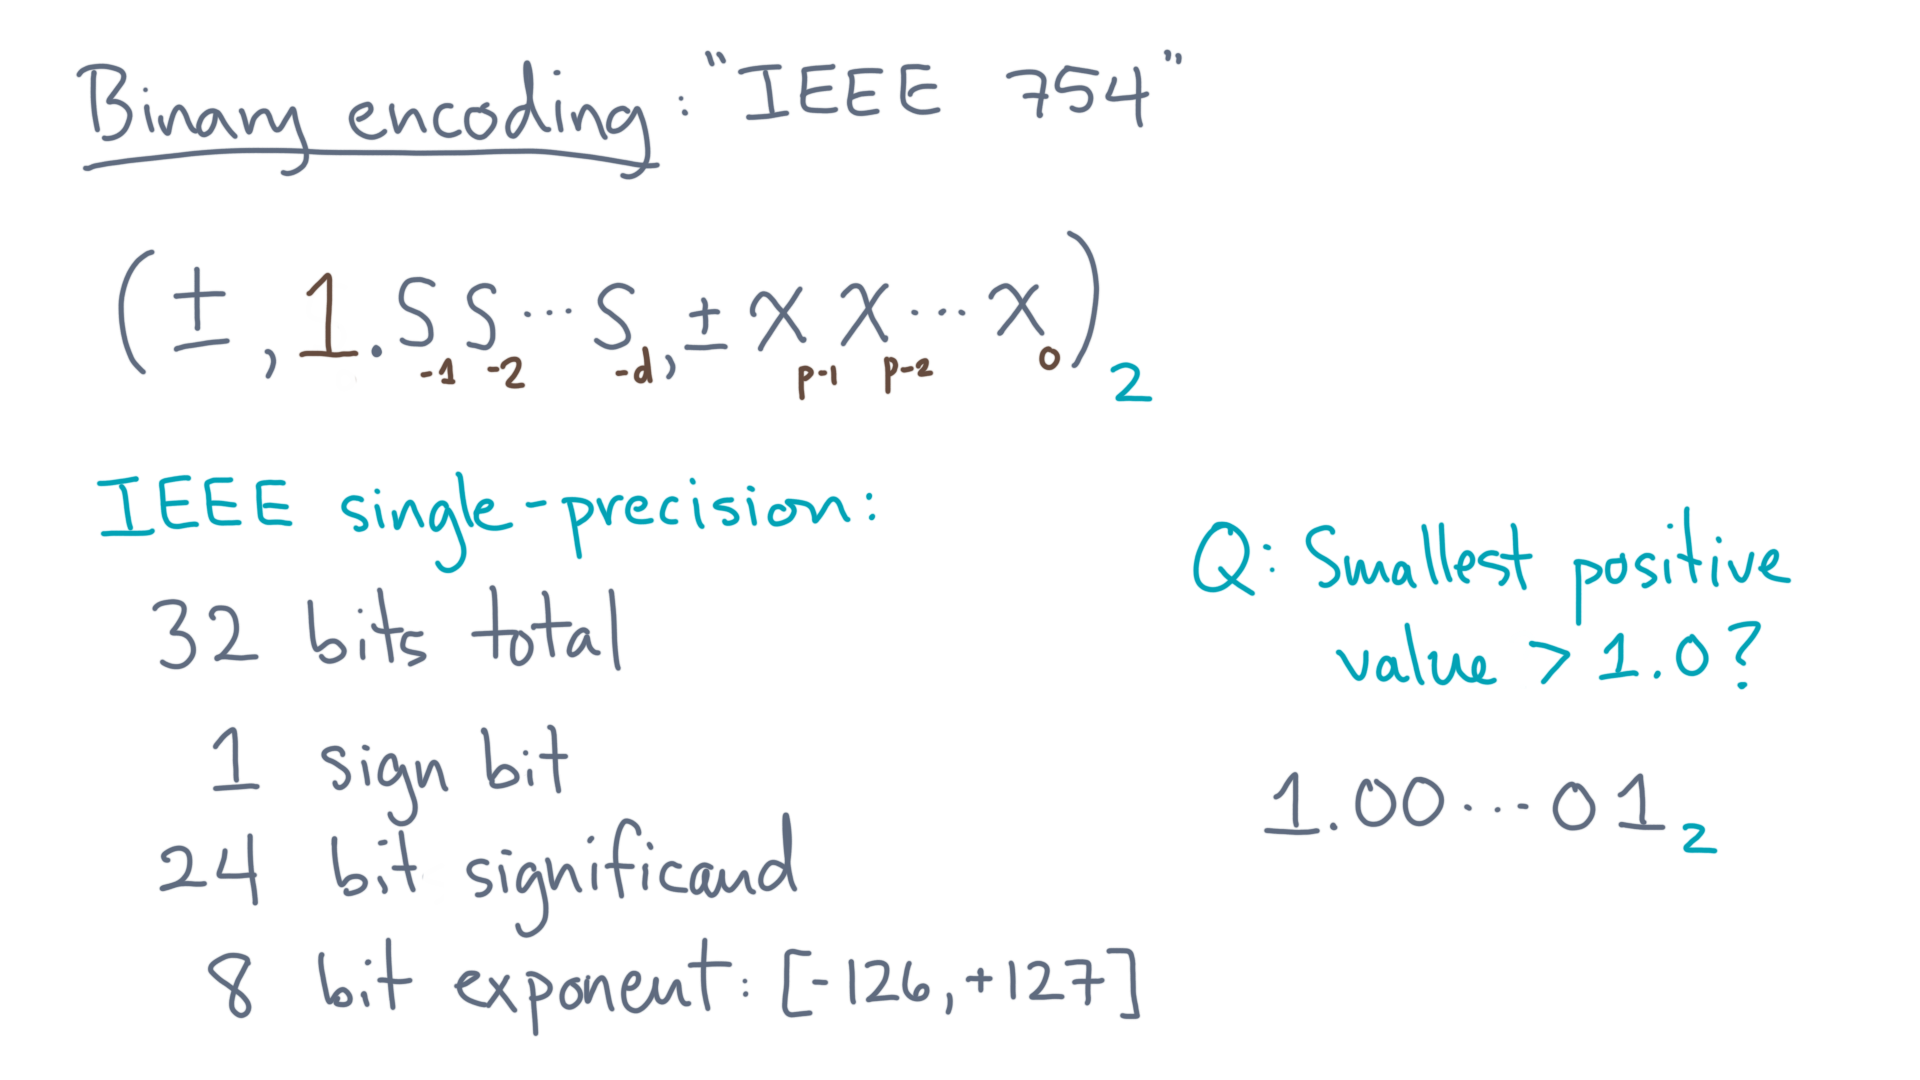 Binary encoding: "IEEE 754"
(±, 1.SS...S, ±XX...X)₂
-1 -2 -d p-1 p-2 0
IEEE single-precision:
32 bits total
1 sign bit
24 bit significand
8 bit exponent: [-126, +127]
Q: Smallest positive
value > 1.0?
1.00...01₂